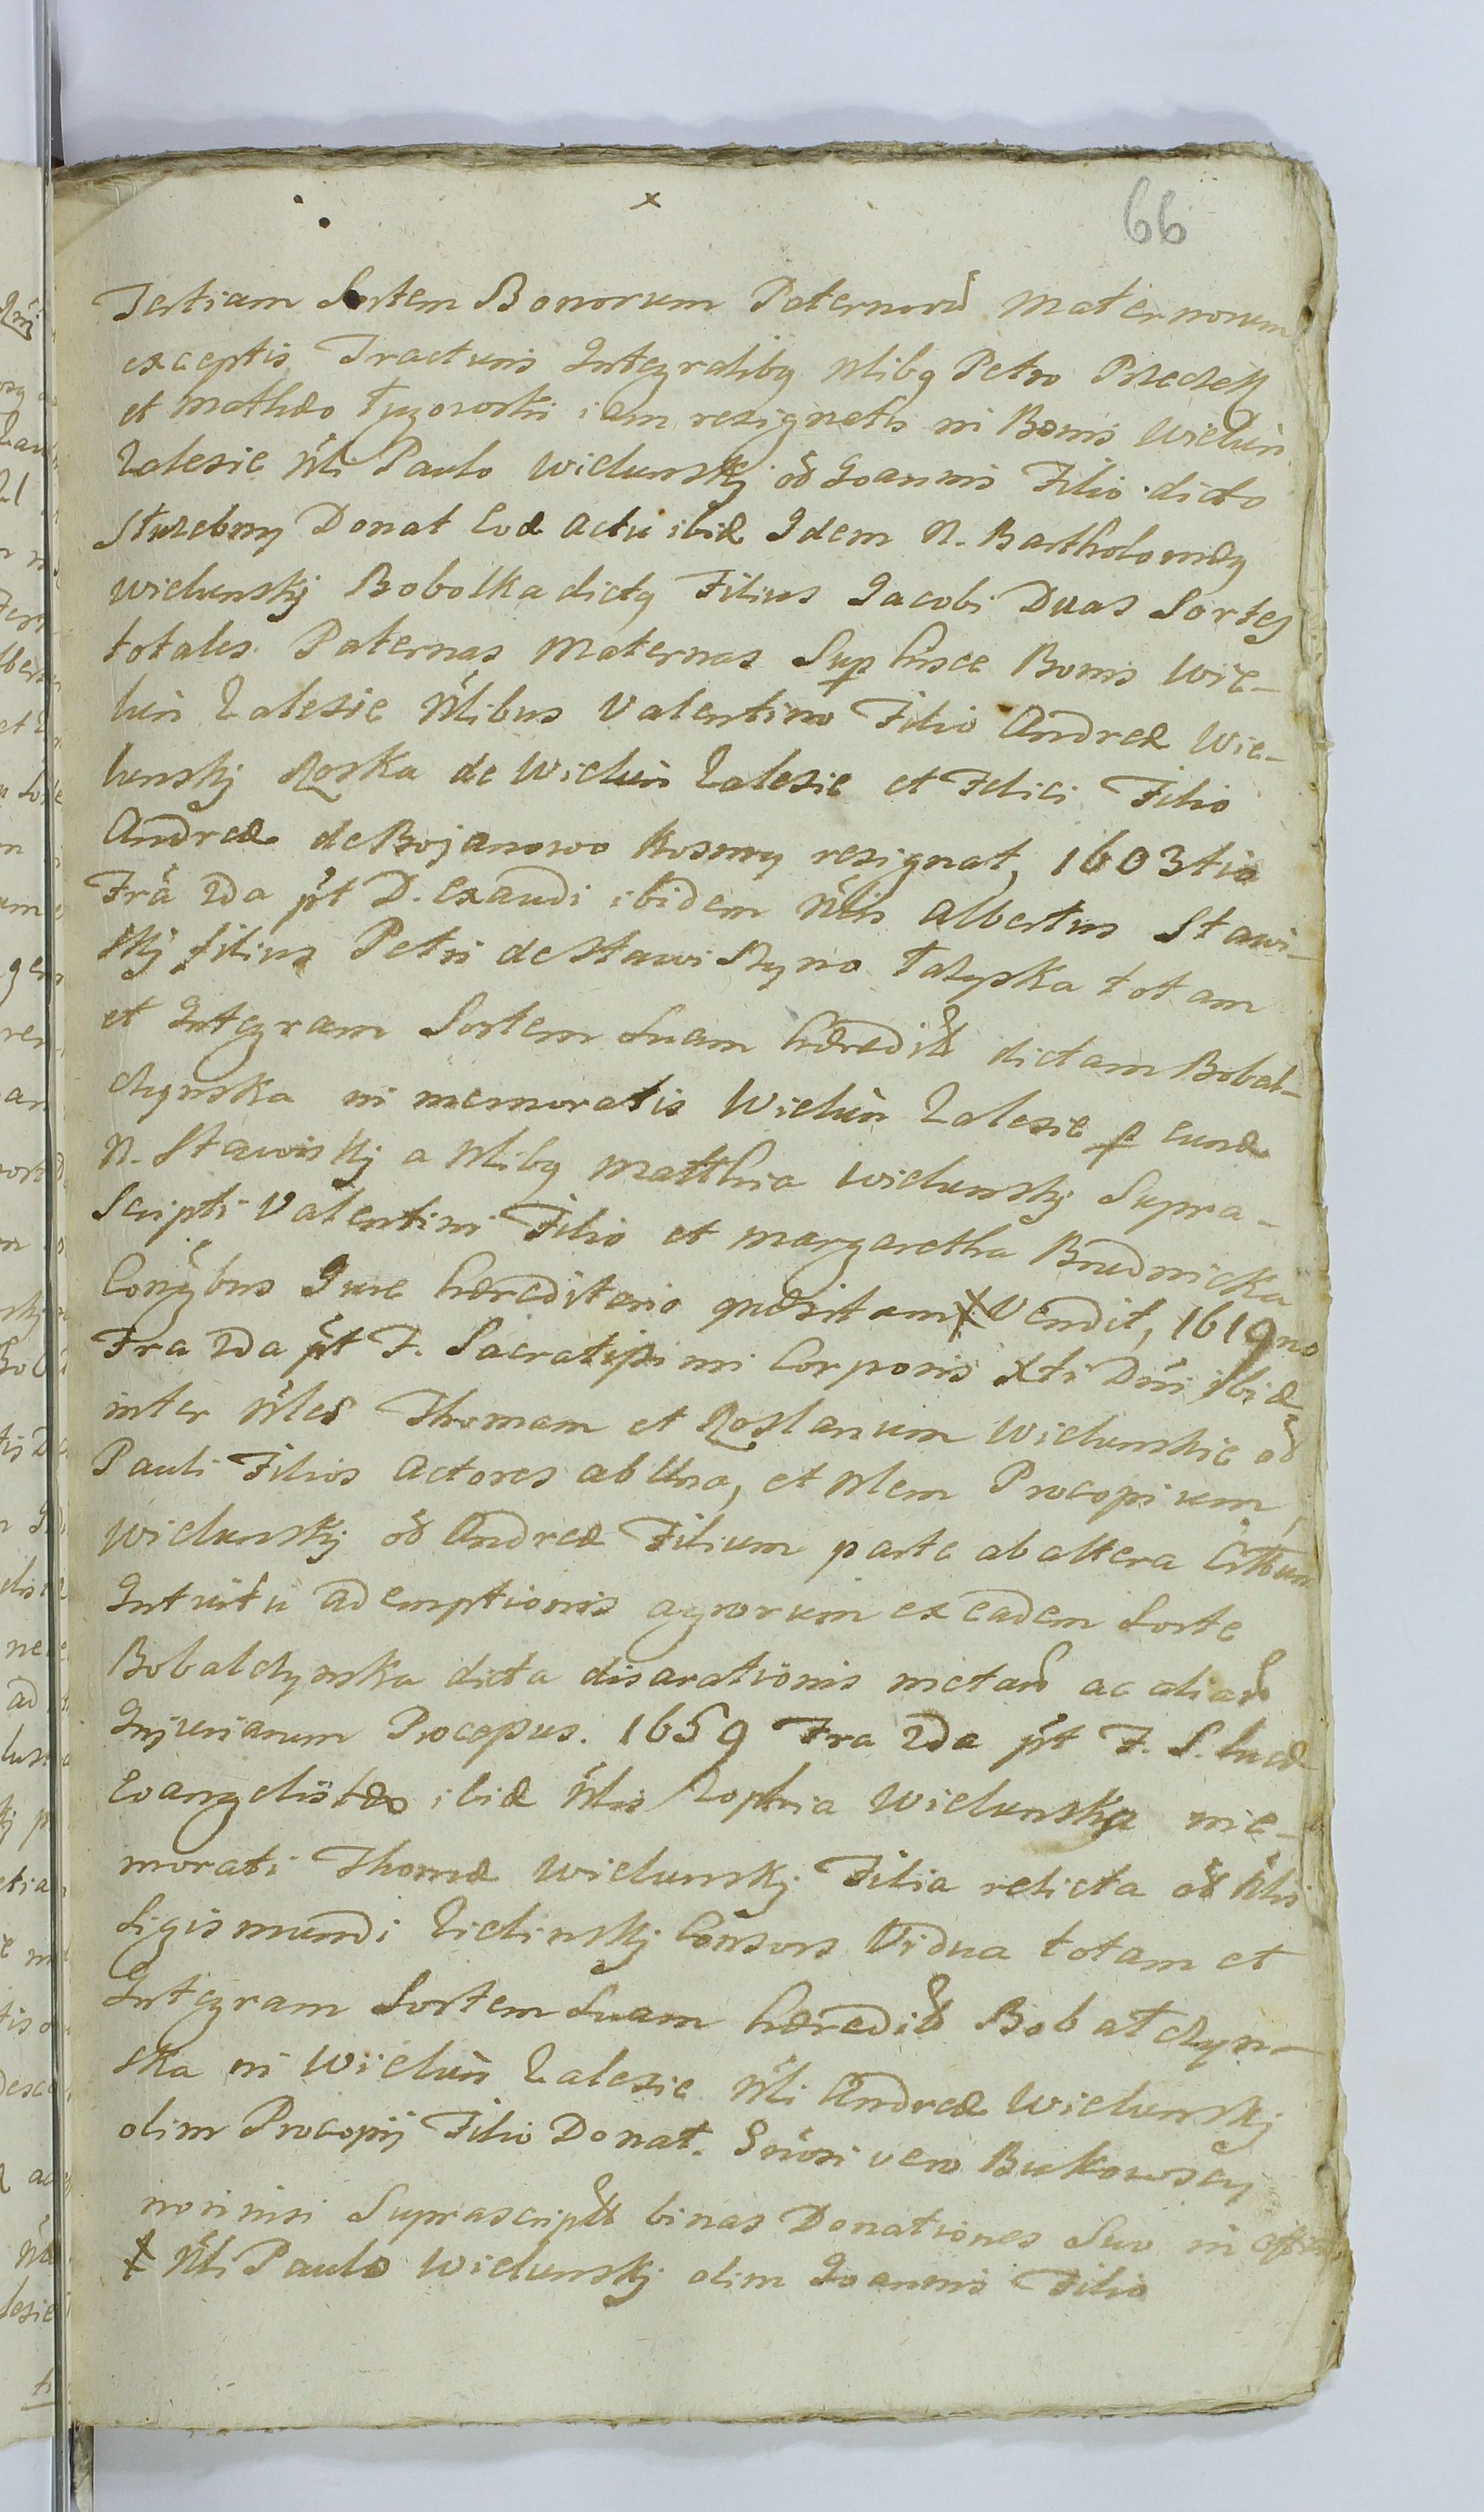 x
66
Tertiam Sortem Bonorum Paternorū Maternorum
exceptis Tractunis Integralibq Nlibq Petro
et Mathæo Tyzowski iam resignatis in Bonis Wieluń
Zalesie Nli Paulo Wielunskj oō Joannis Filio dicto
Służebny Donat Eod actu ibid Idem N. Bartholomæq
Wielunskj Bobolka dictq Filius Jacobi Duas Sortes
totales Paternas Maternas Sup hisce Bonis Wie-
luń Zalesie Nlibus Valentino Filio Andreæ Wie-
lunskj Roska de Wieluń Zalesie et Felici Filio
Andreæ de Bojanowo Kosmy resignat, 1603tio
Frā 2da pt D. Exaudi ibidem Nlis Albertus Stawi-
skj filius Petri de Stawiszyno Łazyska totam
et Integram Sortem Suam hæredit dictam Bobał-
czynska in memoratis Wieluń Zalesie p eund
N. Stawiskj a Nlibq Matthia Wielunskj Supra-
scripti Valentini Filio et Margaretha Brudnicka
Conjbus Jure hæreditario quæsitam X Vendit, 1619no
Fra 2da pt F. Sacratissimi Corporis Xti Dni ibid
inter Nles Thomam et Roslanum Wielunskie oō
Pauli Filios Actores ab Una, et Nlem Procopium
Wielunskj oō Andreæ Filium parte ab altera
Intuitu ademptionis agrorum ex eadem Sorte
Bobalczynska dicta disarationis metarū ac aliarū
Injuriarum Procopus. 1659 Fra 2da pt F. S. Lucæ
Evangelistæ ibid Nlis Zophia Wielunska me-
morati Thomæ Wielunskj Filia relicta oō Nlis
Sigismundi Zielinskj Consors Vidua totam et
Integram Sortem Suam hæredit Bobałczyn-
ska in Wieluń Zalesie Nli Andreæ Wielunskj
olim Procopij Filio Donat. vero Bukowscy
non nisi Suprascript binas Donationes Suo in
X Nli Paulo Wielunskj olim Joannis Filio